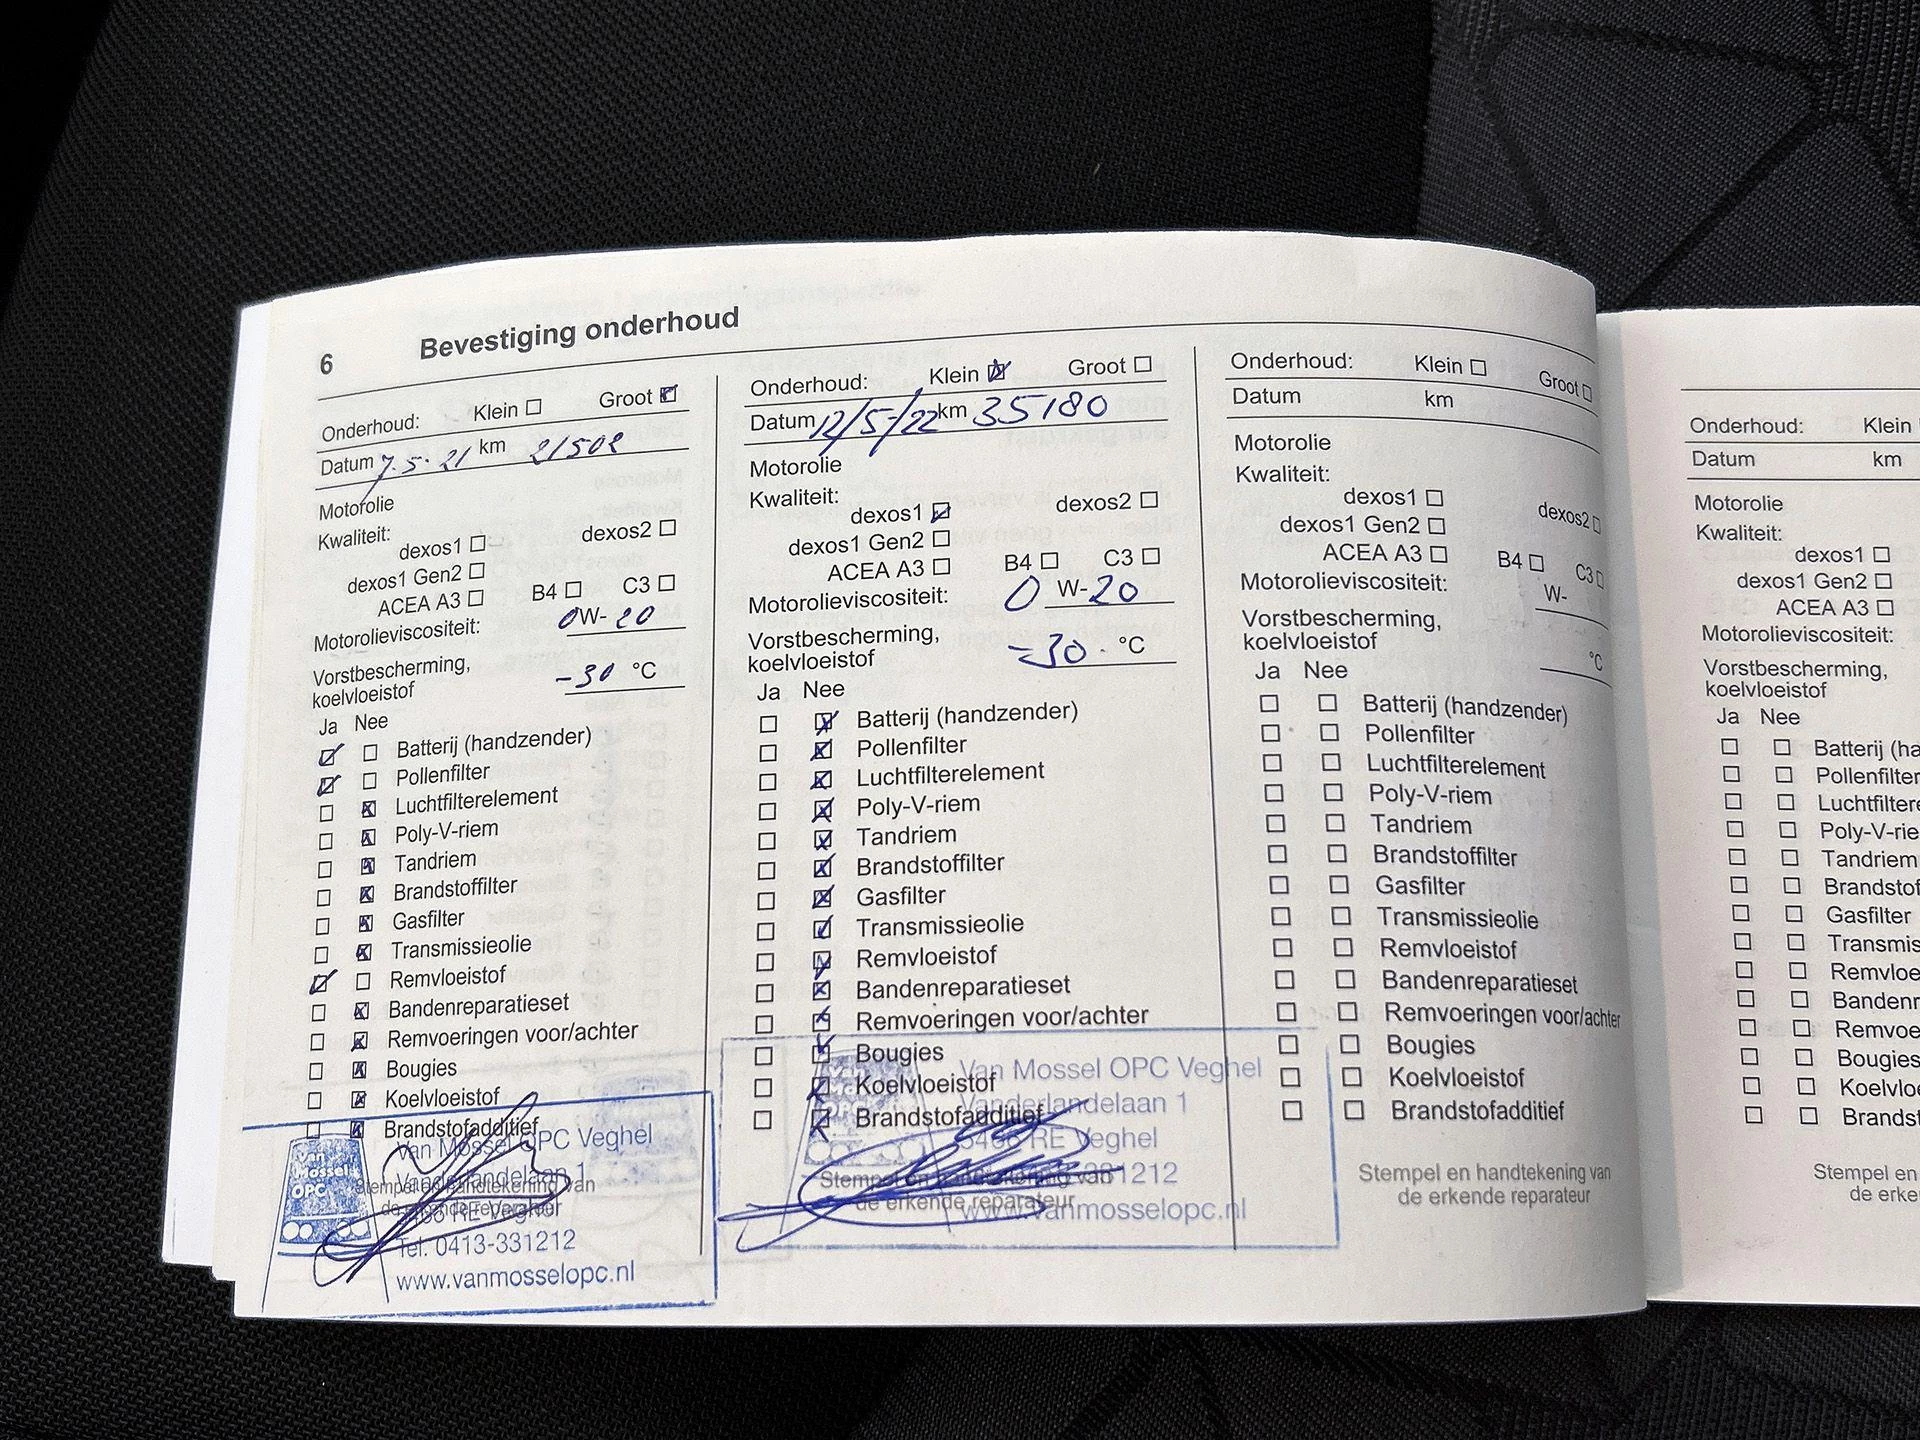 6 Bevestiging onderhoud
Onderhoud: Klein Groot
Datum 7.5.21 km 21502
Motorolie
Kwaliteit:
dexos1 dexos2
dexos1 Gen2
ACEA A3 B4 C3
Motorolieviscositeit: 0W-20
Vorstbescherming,
koelvloeistof -30 °C
Ja Nee
Batterij (handzender)
Pollenfilter
Luchtfilterelement
Poly-V-riem
Tandriem
Brandstoffilter
Gasfilter
Transmissieolie
Remvloeistof
Bandenreparatieset
Remvoeringen voor/achter
Bougies
Koelvloeistof
Brandstofadditief
Stempel en handtekening van
de erkende reparateur
Van Mossel OPC
Van Mossel OPC Veghel
Vanderlandelaan 1
5466 RE Veghel
Tel. 0413-331212
www.vanmosselopc.nl
Onderhoud: Klein Groot
Datum 12/5/22 km 35180
Motorolie
Kwaliteit:
dexos1 dexos2
dexos1 Gen2
ACEA A3 B4 C3
Motorolieviscositeit: 0 W-20
Vorstbescherming,
koelvloeistof -30 °C
Ja Nee
Batterij (handzender)
Pollenfilter
Luchtfilterelement
Poly-V-riem
Tandriem
Brandstoffilter
Gasfilter
Transmissieolie
Remvloeistof
Bandenreparatieset
Remvoeringen voor/achter
Bougies
Koelvloeistof
Brandstofadditief
Stempel en handtekening van
de erkende reparateur
Van Mossel OPC Veghel
Vanderlandelaan 1
5466 RE Veghel
331212
www.vanmosselopc.nl
Onderhoud: Klein Groot
Datum km
Motorolie
Kwaliteit:
dexos1 dexos2
dexos1 Gen2
ACEA A3 B4 C3
Motorolieviscositeit: W-
Vorstbescherming,
koelvloeistof °C
Ja Nee
Batterij (handzender)
Pollenfilter
Luchtfilterelement
Poly-V-riem
Tandriem
Brandstoffilter
Gasfilter
Transmissieolie
Remvloeistof
Bandenreparatieset
Remvoeringen voor/achter
Bougies
Koelvloeistof
Brandstofadditief
Stempel en handtekening van
de erkende reparateur
Onderhoud: Klein
Datum km
Motorolie
Kwaliteit:
dexos1
dexos1 Gen2
ACEA A3
Motorolieviscositeit:
Vorstbescherming,
koelvloeistof
Ja Nee
Batterij (ha
Pollenfilter
Luchtfiltere
Poly-V-rie
Tandriem
Brandstof
Gasfilter
Transmis
Remvloe
Bandenr
Remvoe
Bougies
Koelvlo
Brandst
Stempel en
de erke